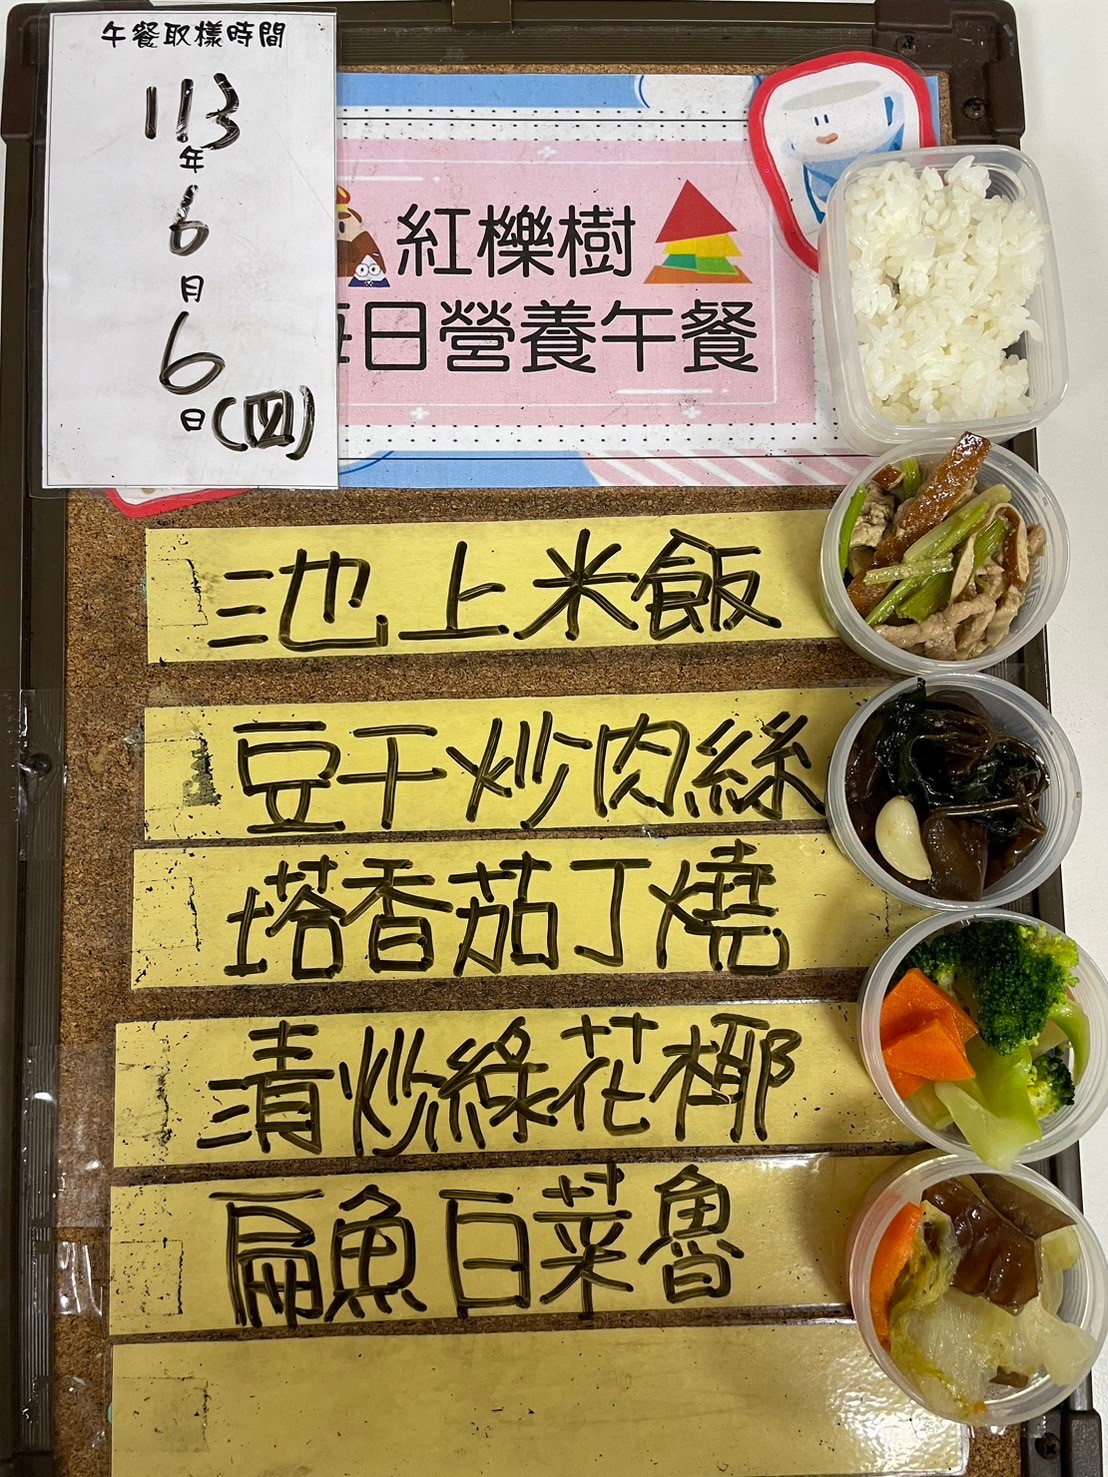 午餐取樣時間
113
年
6
月
6
日(四)
紅櫟樹
每日營養午餐
池上米飯
豆干炒肉絲
塔香茄丁燒
清炒綠花椰
扁魚白菜魯